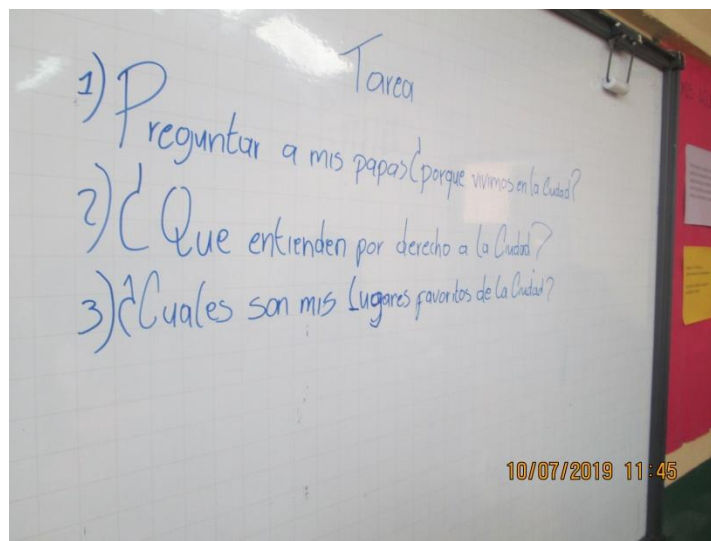 Tarea
1) Preguntar a mis papas ¿porque vivimos en la Ciudad?
2) ¿Que entienden por derecho a la Ciudad?
3) ¿Cuales son mis Lugares favoritos de la Ciudad?
10/07/2019 11:45